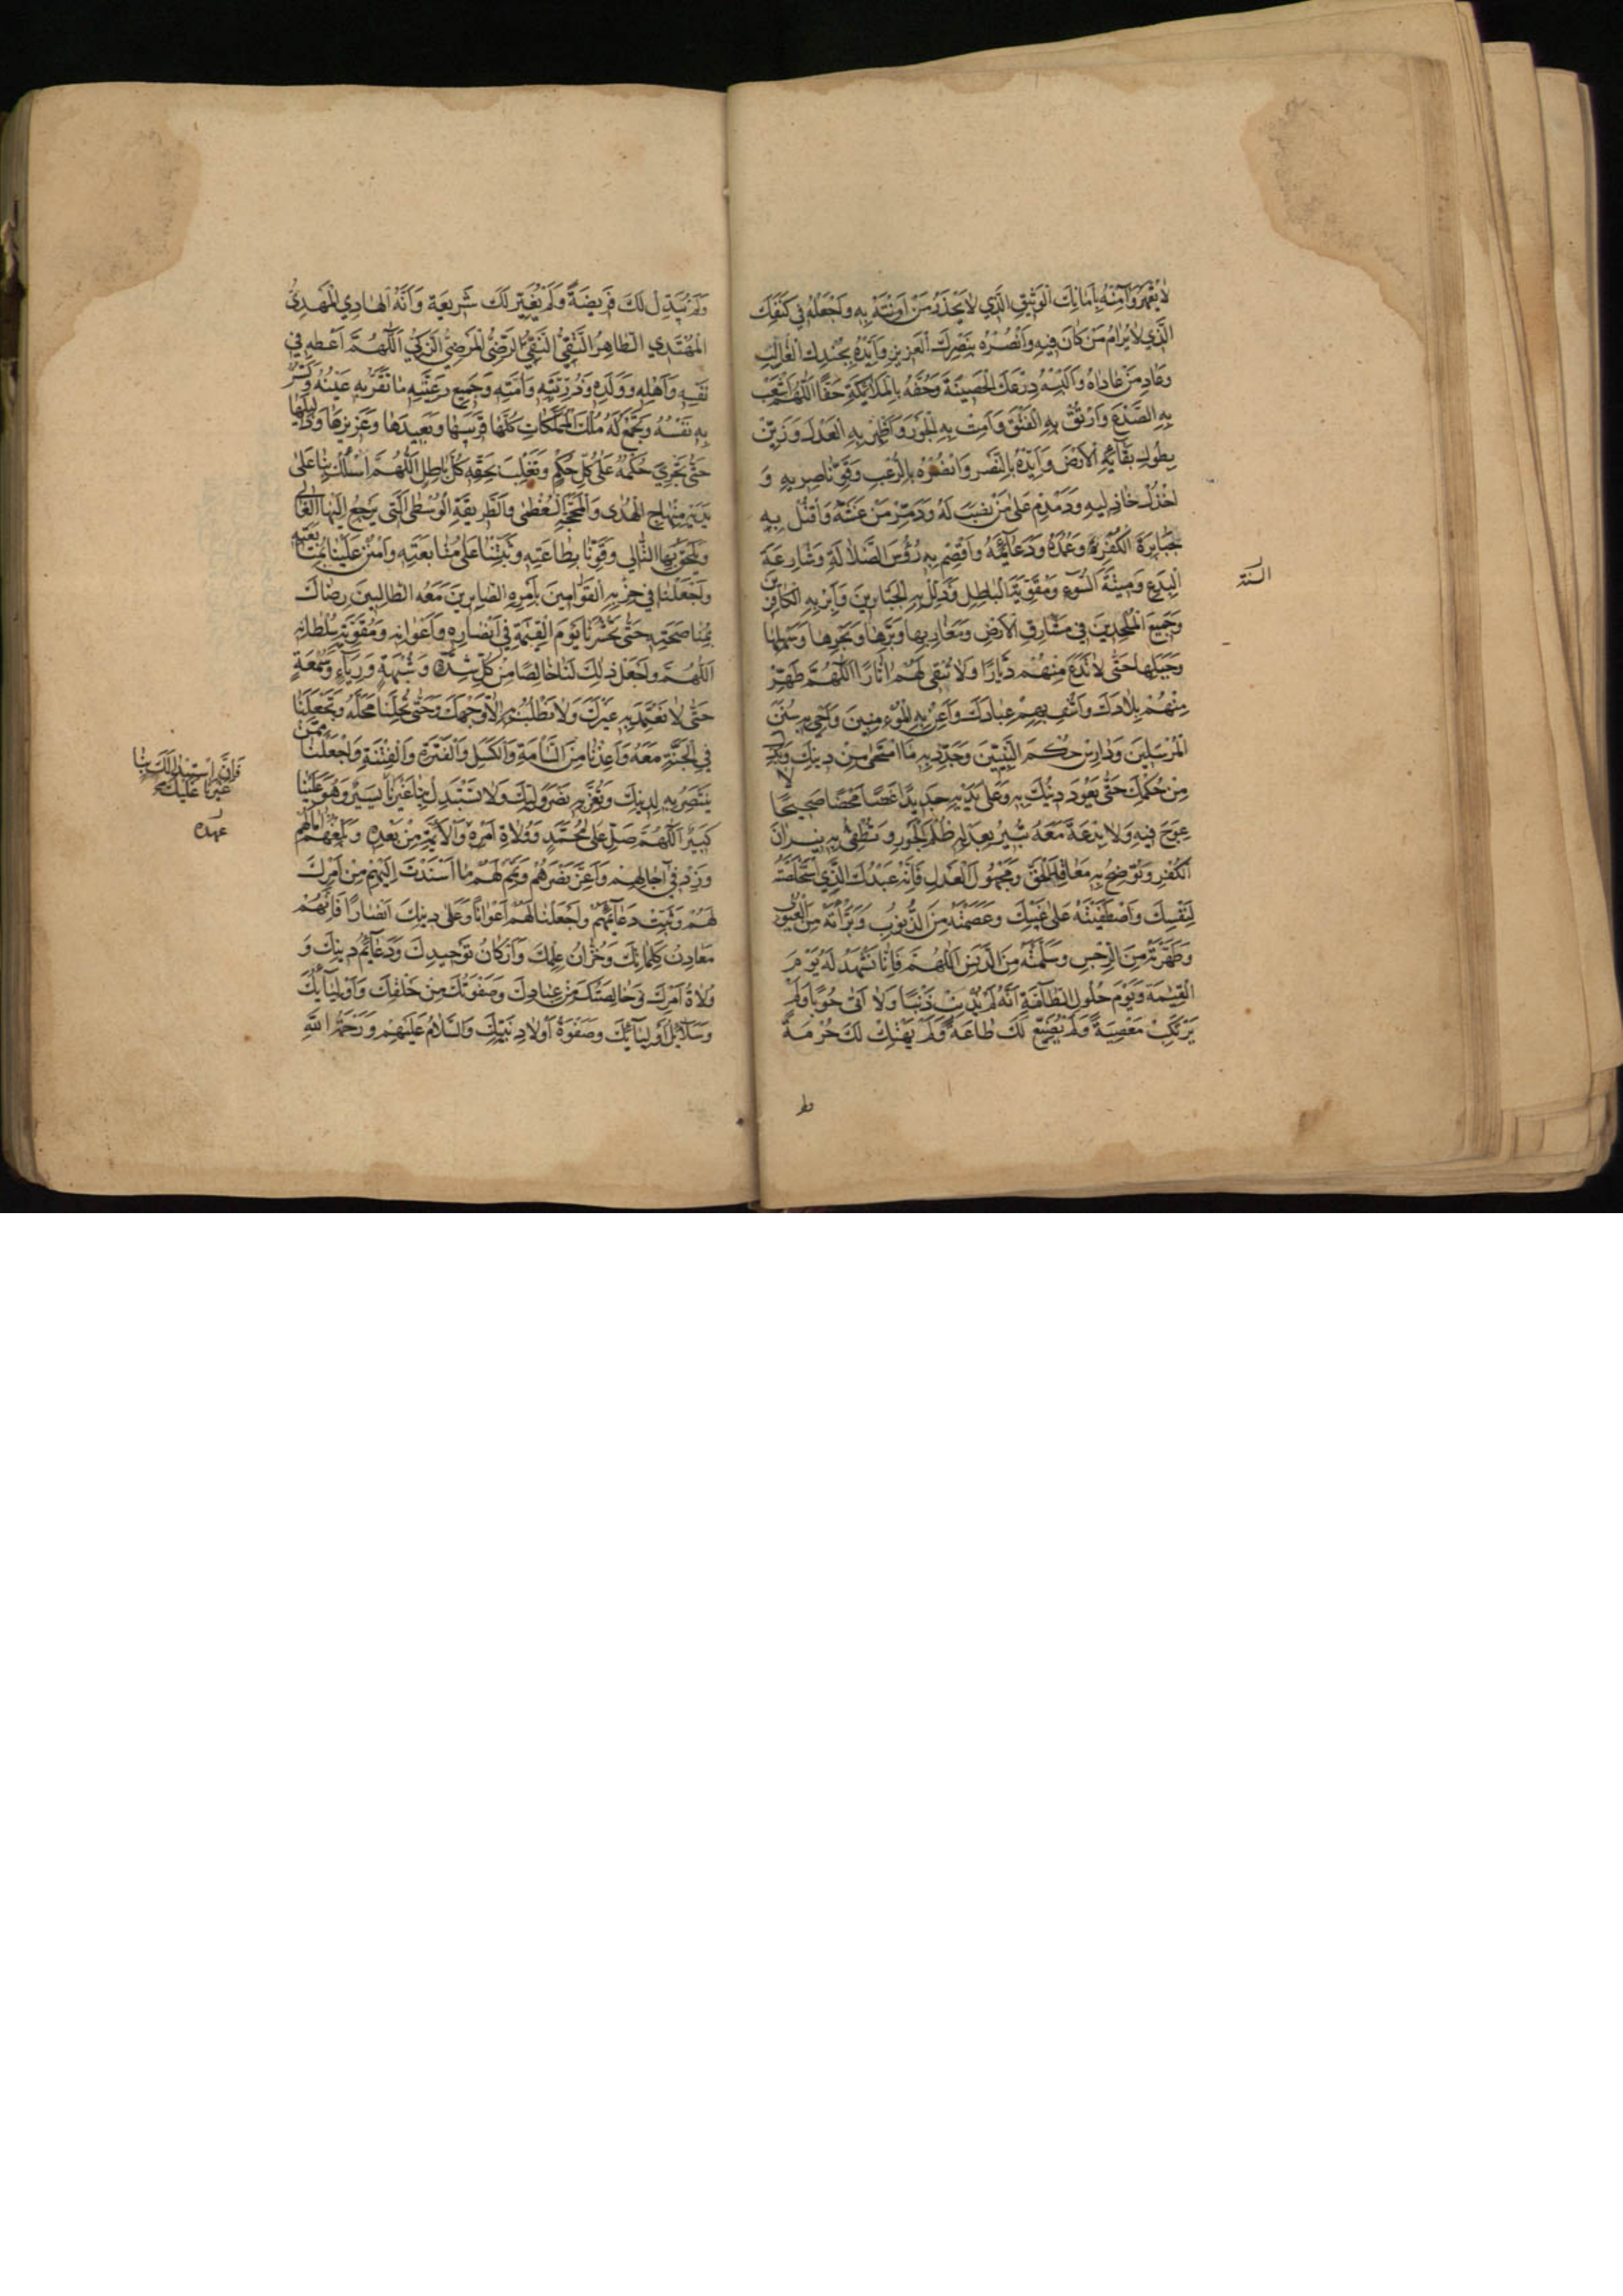 لَا يُقْهَرُ وَآمِنْهُ بِأَمَانِكَ الْوَثِيقِ الَّذِي لَا يُخْذَلُ مَنْ آمَنْتَهُ بِهِ وَاجْعَلْهُ فِي كَنَفِكَ
الَّذِي لَا يُرَامُ مَنْ كَانَ فِيهِ وَانْصُرْهُ بِنَصْرِكَ الْعَزِيزِ وَأَيِّدْهُ بِجُنْدِكَ الْغَالِبِ
وَعَادِ مَنْ عَادَاهُ وَأَلْبِسْهُ دِرْعَكَ الْحَصِينَةَ وَحُفَّهُ بِالْمَلَائِكَةِ حَفًّا اللَّهُمَّ اشْعَبْ
بِهِ الصَّدْعَ وَارْتُقْ بِهِ الْفَتْقَ وَأَمِتْ بِهِ الْجَوْرَ وَأَظْهِرْ بِهِ الْعَدْلَ وَزَيِّنْ
بِطُولِ بَقَائِهِ الْأَرْضَ وَأَيِّدْهُ بِالنَّصْرِ وَانْصُرْهُ بِالرُّعْبِ وَقَوِّ نَاصِرِيهِ وَ
اخْذُلْ خَاذِلِيهِ وَدَمْدِمْ عَلَى مَنْ نَصَبَ لَهُ وَدَمِّرْ مَنْ غَشَّهُ وَاقْتُلْ بِهِ
جَبَابِرَةَ الْكَفَرَةِ وَعُمُدَهُ وَدَعَائِمَهُ وَاقْصِمْ بِهِ رُؤُسَ الضَّلَالَةِ وَشَارِعَةَ
الْبِدَعِ وَمُمِيتَةَ السُّوءِ وَمُقَوِّيَةَ الْبَاطِلِ وَذَلِّلْ بِهِ الْجَبَّارِينَ وَأَبِرْ بِهِ الْكَافِرِينَ
السنة
وَجَمِيعَ الْمُلْحِدِينَ فِي مَشَارِقِ الْأَرْضِ وَمَغَارِبِهَا وَبَرِّهَا وَبَحْرِهَا وَسَهْلِهَا
وَجَبَلِهَا حَتَّى لَا تَدَعَ مِنْهُمْ دَيَّارًا وَلَا تُبْقِيَ لَهُمْ آثَارًا اللَّهُمَّ طَهِّرْ
مِنْهُمْ بِلَادَكَ وَاشْفِ مِنْهُمْ عِبَادَكَ وَأَعِزَّ بِهِ الْمُؤْمِنِينَ وَأَحْيِ بِهِ سُنَنَ
الْمُرْسَلِينَ وَدَارِسَ حُكْمِ النَّبِيِّينَ وَجَدِّدْ بِهِ مَا امْتَحَى مِنْ دِينِكَ وَبُدِّلَ
مِنْ حُكْمِكَ حَتَّى يَعُودَ دِينُكَ بِهِ وَعَلَى يَدَيْهِ جَدِيدًا غَضًّا مَحْضًا صَحِيحًا لَا
عِوَجَ فِيهِ وَلَا بِدْعَةَ مَعَهُ تُنِيرُ بِعَدْلِهِ ظُلَمَ الْجَوْرِ وَتُطْفِئُ بِهِ نِيرَانَ
الْكُفْرِ وَتُوضِحُ بِهِ مَعَاقِدَ الْحَقِّ وَمَجْهُولَ الْعَدْلِ فَإِنَّهُ عَبْدُكَ الَّذِي اسْتَخْلَصْتَهُ
لِنَفْسِكَ وَاصْطَفَيْتَهُ عَلَى غَيْبِكَ وَعَصَمْتَهُ مِنَ الذُّنُوبِ وَبَرَّأْتَهُ مِنَ الْعُيُوبِ
وَطَهَّرْتَهُ مِنَ الرِّجْسِ وَسَلَّمْتَهُ مِنَ الدَّنَسِ اللَّهُمَّ فَإِنَّا نَشْهَدُ لَهُ يَوْمَ
الْقِيٰمَةِ وَيَوْمَ حُلُولِ الطَّامَّةِ أَنَّهُ لَمْ يُذْنِبْ ذَنْبًا وَلَا أَتَى حُوبًا وَلَمْ
يَرْتَكِبْ مَعْصِيَةً وَلَمْ يُضَيِّعْ لَكَ طَاعَةً وَلَمْ يَهْتِكْ لَكَ حُرْمَةً
وَلَمْ يُبَدِّلْ لَكَ فَرِيضَةً وَلَمْ يُغَيِّرْ لَكَ شَرِيعَةً وَأَنَّهُ الْهَادِي الْمَهْدِيُّ
الْمُهْتَدِي الطَّاهِرُ التَّقِيُّ النَّقِيُّ الرَّضِيُّ الْمَرْضِيُّ الزَّكِيُّ اللَّهُمَّ أَعْطِهِ فِي
نَفْسِهِ وَأَهْلِهِ وَوَلَدِهِ وَذُرِّيَّتِهِ وَأُمَّتِهِ وَجَمِيعِ رَعِيَّتِهِ مَا تُقِرُّ بِهِ عَيْنَهُ وَتَسُرُّ
بِهِ نَفْسَهُ وَتَجْمَعُ لَهُ مُلْكَ الْمَمْلَكَاتِ كُلِّهَا قَرِيبِهَا وَبَعِيدِهَا وَعَزِيزِهَا وَذَلِيلِهَا
حَتَّى يَجْرِيَ حُكْمُهُ عَلَى كُلِّ حُكْمٍ وَتَغْلِبَ بِحَقِّهِ كُلَّ بَاطِلٍ اللَّهُمَّ اسْلُكْ بِنَا عَلَى
يَدَيْهِ مِنْهَاجَ الْهُدَى وَالْمَحَجَّةَ الْعُظْمَى وَالطَّرِيقَةَ الْوُسْطَى الَّتِي يَرْجِعُ إِلَيْهَا الْغَالِي
وَيَلْحَقُ بِهَا التَّالِي وَقَوِّنَا بِطَاعَتِهِ وَثَبِّتْنَا عَلَى مُشَايَعَتِهِ وَامْنُنْ عَلَيْنَا بِمُتَابَعَتِهِ
وَاجْعَلْنَا فِي حِزْبِهِ الْقَوَّامِينَ بِأَمْرِهِ الصَّابِرِينَ مَعَهُ الطَّالِبِينَ رِضَاكَ
بِمُنَاصَحَتِهِ حَتَّى تَحْشُرَنَا يَوْمَ الْقِيٰمَةِ فِي أَنْصَارِهِ وَأَعْوَانِهِ وَمُقَوِّيَةِ سُلْطَانِهِ
اللَّهُمَّ وَاجْعَلْ ذَلِكَ لَنَا خَالِصًا مِنْ كُلِّ شَكٍّ وَشُبْهَةٍ وَرِيَاءٍ وَسُمْعَةٍ
حَتَّى لَا نَعْتَمِدَ بِهِ غَيْرَكَ وَلَا نَطْلُبَ بِهِ إِلَّا وَجْهَكَ وَحَتَّى تُحِلَّنَا مَحَلَّهُ وَتَجْعَلَنَا
فِي الْجَنَّةِ مَعَهُ وَأَعِذْنَا مِنَ السَّأْمَةِ وَالْكَسَلِ وَالْفَتْرَةِ وَالْفِتْنَةِ وَاجْعَلْنَا مِمَّنْ
يَنْتَصِرُ بِهِ لِدِينِكَ وَتُعِزُّ بِهِ نَصْرَ وَلِيِّكَ وَلَا تَسْتَبْدِلْ بِنَا غَيْرَنَا يَسِيرٌ وَهُوَ عَلَيْنَا
فَإِنَّ اسْتِبْدَالَكَ بِنَا
غَيْرَنَا عَلَيْكَ
كَبِيرٌ اللَّهُمَّ صَلِّ عَلَى مُحَمَّدٍ وَوُلَاةِ أَمْرِهِ وَالْأَئِمَّةِ مِنْ بَعْدِهِ وَبَلِّغْهُمْ آمَالَهُمْ
عهده
وَزِدْ فِي آجَالِهِمْ وَأَعِزَّ نَصْرَهُمْ وَتَمِّمْ لَهُمْ مَا أَسْنَدْتَ إِلَيْهِمْ مِنْ أَمْرِكَ
لَهُمْ وَثَبِّتْ دَعَائِمَهُمْ وَاجْعَلْنَا لَهُمْ أَعْوَانًا وَعَلَى دِينِكَ أَنْصَارًا فَإِنَّهُمْ
مَعَادِنُ كَلِمَاتِكَ وَخُزَّانُ عِلْمِكَ وَأَرْكَانُ تَوْحِيدِكَ وَدَعَائِمُ دِينِكَ وَ
وُلَاةُ أَمْرِكَ وَخَالِصَتُكَ مِنْ عِبَادِكَ وَصَفْوَتُكَ مِنْ خَلْقِكَ وَأَوْلِيَائِكَ
وَسَلَائِلُ أَوْلِيَائِكَ وَصَفْوَةُ أَوْلَادِ نَبِيِّكَ وَالسَّلَامُ عَلَيْهِمْ وَرَحْمَةُ اللَّهِ